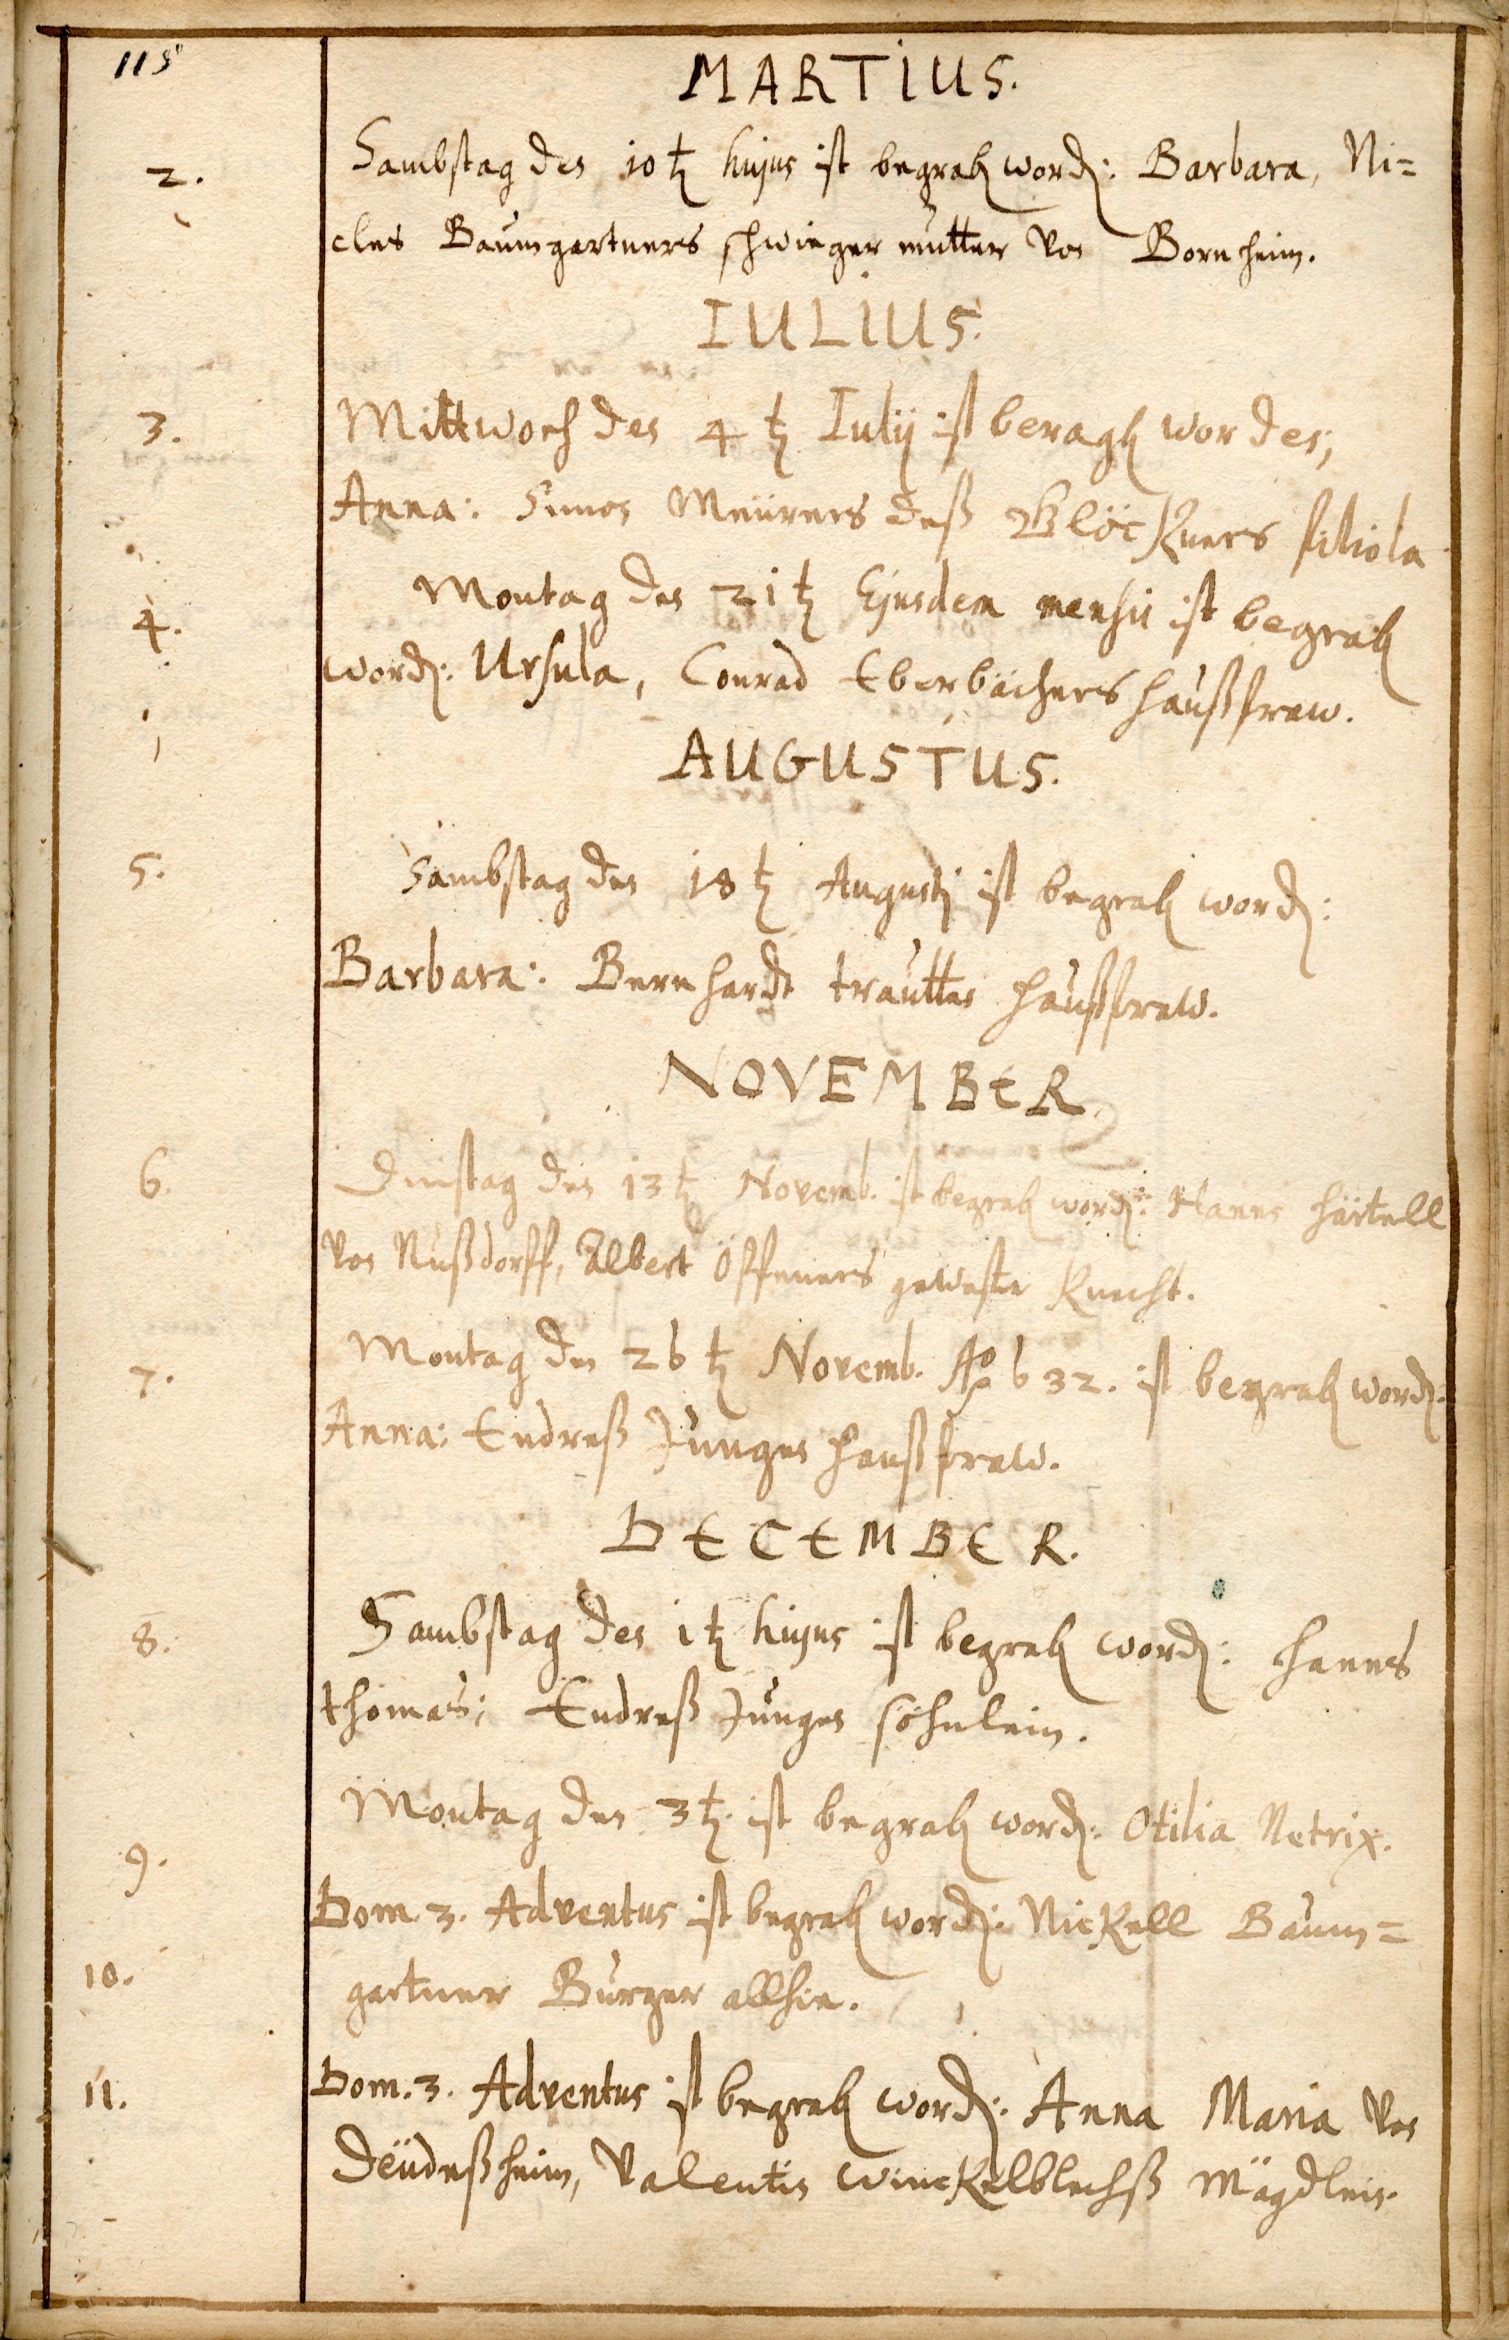 115
MARTIUS.
2. Sambstag den 10 tz hujus ist begrab word: Barbara, Ni=
cles Baumgartners schwieger mutter von Bornheim.
IULIUS.
3. Mittwoch den 4 tz Iulij ist beragb worden;
Anna: Simon Meürers deß Glöckners filiola
4. Montag den 21 tz Ejusdem mensis ist begrab
word: Ursula, Conrad Eberbachers haußfraw.
AUGUSTUS.
5. Sambstag den 18 tz Augusti ist begrab word:
Barbara: Bernhardt trautten haußfraw.
NOVEMBER
6. Dinstag den 13 tz Novemb. ist begrab word: Hanns Härtell
von Nußdorff, Albert Öffeners gewester Knecht.
7. Montag den 26 tz Novemb. Ao 632. ist begrab word.
Anna: Endreß Jungen haußfraw.
DECEMBER.
8. Sambstag den 1 tz hujus ist begrab word: Hanns
thomas; Endreß Jungen söhnlein.
9. Montag den 3 tz. ist begrab word: Otilia Netrix.
10. Dom. 3. Adventus ist begrab word: Nickell Baum=
gartner Burger allhie.
11. Dom. 3. Adventus ist begrab word: Anna Maria von
Deüdeßheim, Valentin Winckelblechß Mägdlein.